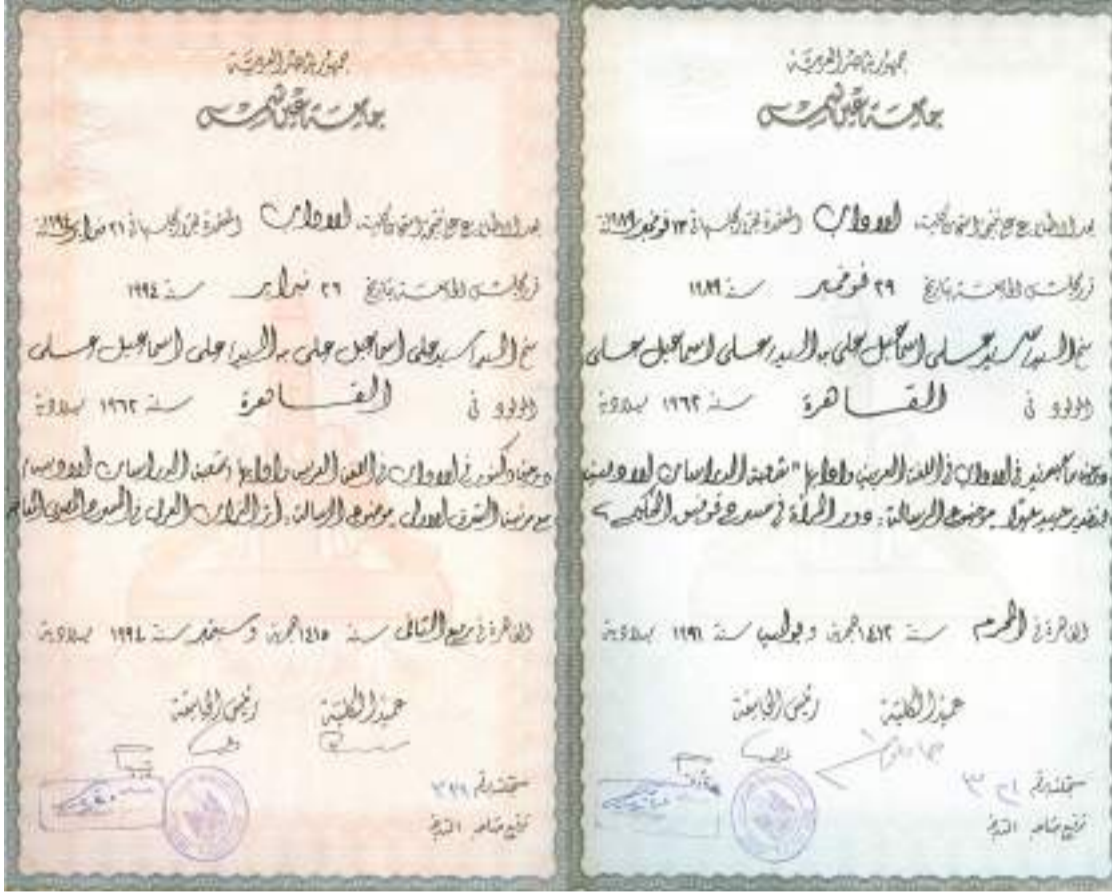 جمهورية مصر العربية
جامعة عين شمس
بعد الاطلاع على نتيجة امتحان كلية الآداب المعتمدة بقرار مجلسها في ١٣ نوفمبر ١٩٨٩
قرر مجلس الجامعة بتاريخ ٢٩ نوفمبر سنة ١٩٨٩
منح السيد/ سيد على اسماعيل على بن السيد/ على اسماعيل على
المولود في القاهرة سنة ١٩٦٢ ميلادية
درجة ماجستير في الآداب في اللغة العربية وآدابها "شعبة الدراسات الأدبية"
بتقدير جيد جداً موضوع الرسالة: دور المرأة في مسرح توفيق الحكيم
القاهرة في المحرم سنة ١٤١٢ هجرية و يوليو سنة ١٩٩١ ميلادية
عميد الكلية رئيس الجامعة
سجلت برقم
توقيع صاحب
جمهورية مصر العربية
جامعة عين شمس
بعد الاطلاع على نتيجة امتحان كلية الآداب المعتمدة بقرار مجلسها في ٢١ فبراير ١٩٩٤
قرر مجلس الجامعة بتاريخ ٢٦ فبراير سنة ١٩٩٤
منح السيد/ سيد على اسماعيل على بن السيد/ على اسماعيل على
المولود في القاهرة سنة ١٩٦٢ ميلادية
درجة دكتور في الآداب في اللغة العربية وآدابها "شعبة الدراسات الأدبية"
مع مرتبة الشرف الأولى موضوع الرسالة: أثر التراث العربي في المسرح المصري المعاصر
القاهرة في ربيع الثاني سنة ١٤١٥ هجرية و سبتمبر سنة ١٩٩٤ ميلادية
عميد الكلية رئيس الجامعة
سجلت برقم ٣٩٩
توقيع صاحب